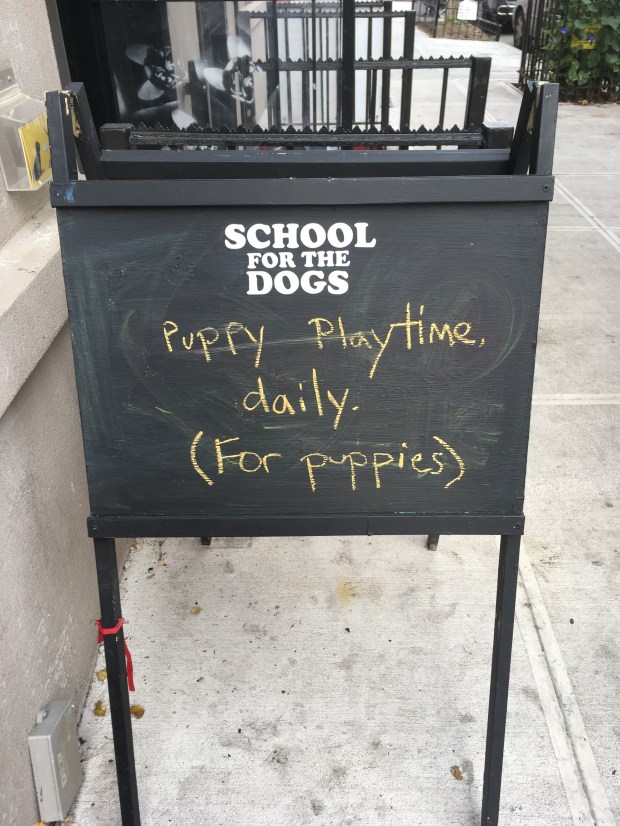 SCHOOL
FOR THE
DOGS
Puppy Playtime,
daily.
(For puppies)